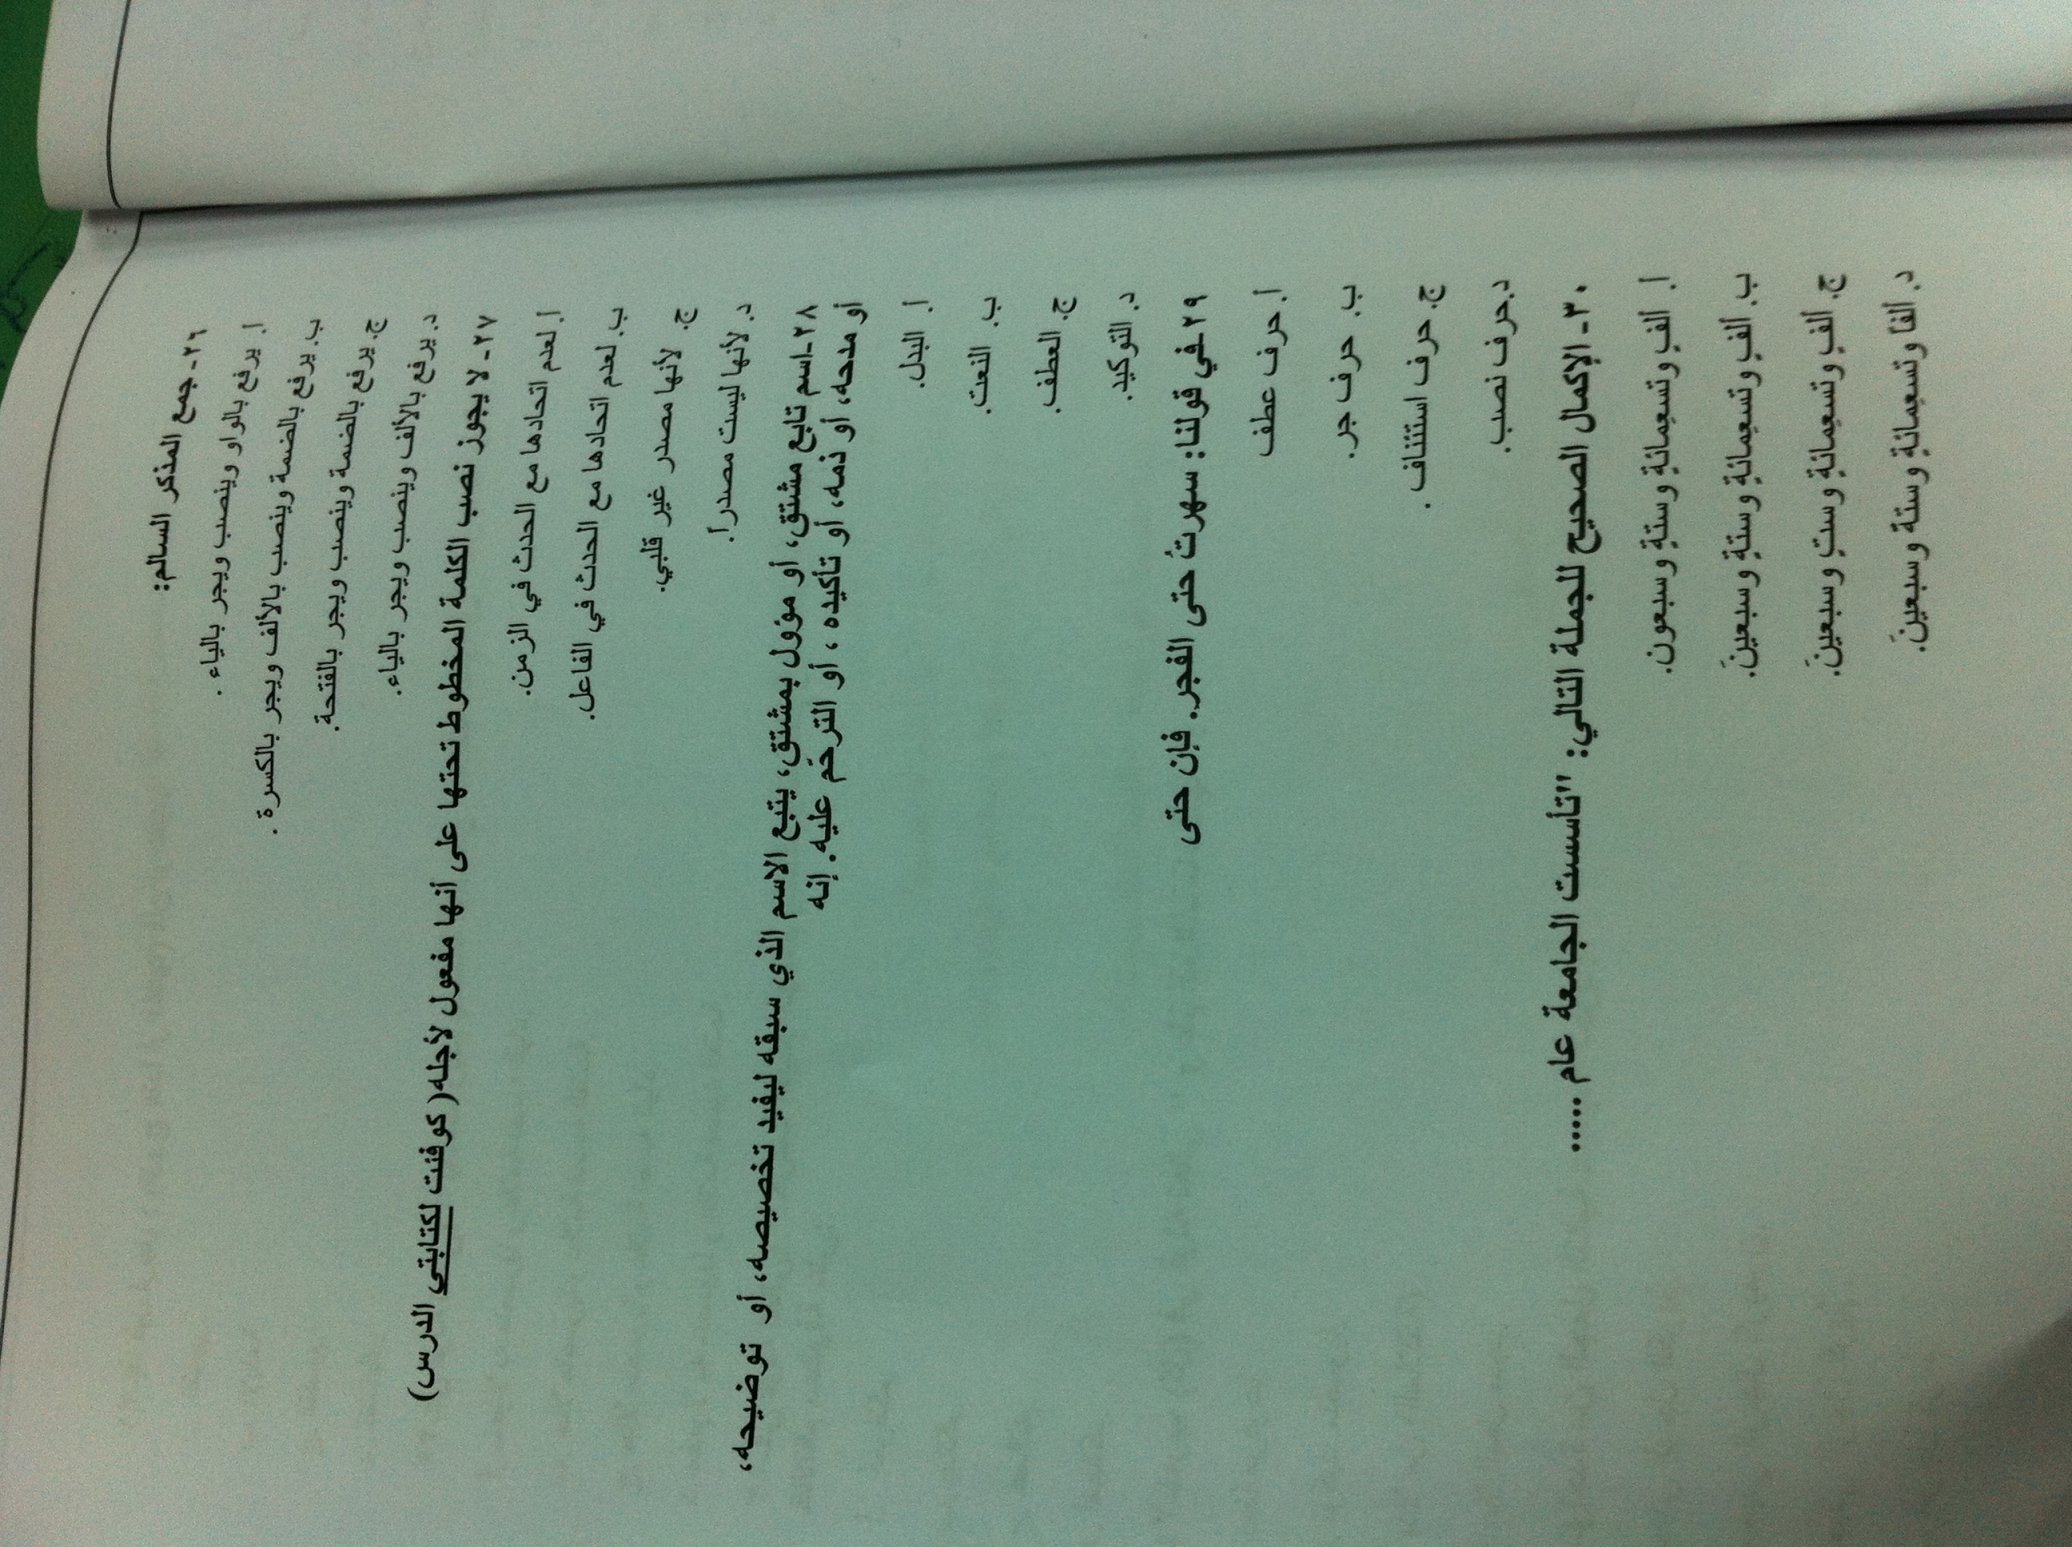 ٢٦- جمع المذكر السالم:
أ. يرفع بالواو وينصب ويجر بالياء .
ب. يرفع بالضمة وينصب بالألف ويجر بالكسرة .
ج. يرفع بالضمة وينصب ويجر بالفتحة.
د. يرفع بالألف وينصب ويجر بالياء.
٢٧- لا يجوز نصب الكلمة المخطوط تحتها على أنها مفعول لأجله( كوفئت لكتابتي الدرس)
أ. لعدم اتحادها مع الحدث في الزمن.
ب. لعدم اتحادها مع الحدث في الفاعل.
ج. لأنها مصدر غير قلبي.
د. لأنها ليست مصدراً.
٢٨-اسم تابع مشتق، أو مؤول بمشتق، يتبع الاسم الذي سبقه ليفيد تخصيصه، أو توضيحه،
أو مدحه، أو ذمه، أو تأكيده ، أو الترحّم عليه. إنه
أ. البدل.
ب. النعت.
ج. العطف.
د. التوكيد.
٢٩-في قولنا: سهرتُ حتى الفجر. فإن حتى
أ. حرف عطف
ب. حرف جر.
ج. حرف استئناف .
د.حرف نصب.
٣٠- الإكمال الصحيح للجملة التالي: "تأسست الجامعة عام .....
أ. ألفٍ وتسعِمائةٍ وستةٍ وسبعون.
ب. ألفٍ وتسعِمائةٍ وستةٍ وسبعينَ.
ج. ألفٍ وتسعِمائةٍ وستٍ وسبعينَ.
د. ألفاً وتسعِمائةٍ وستة وسبعينَ.